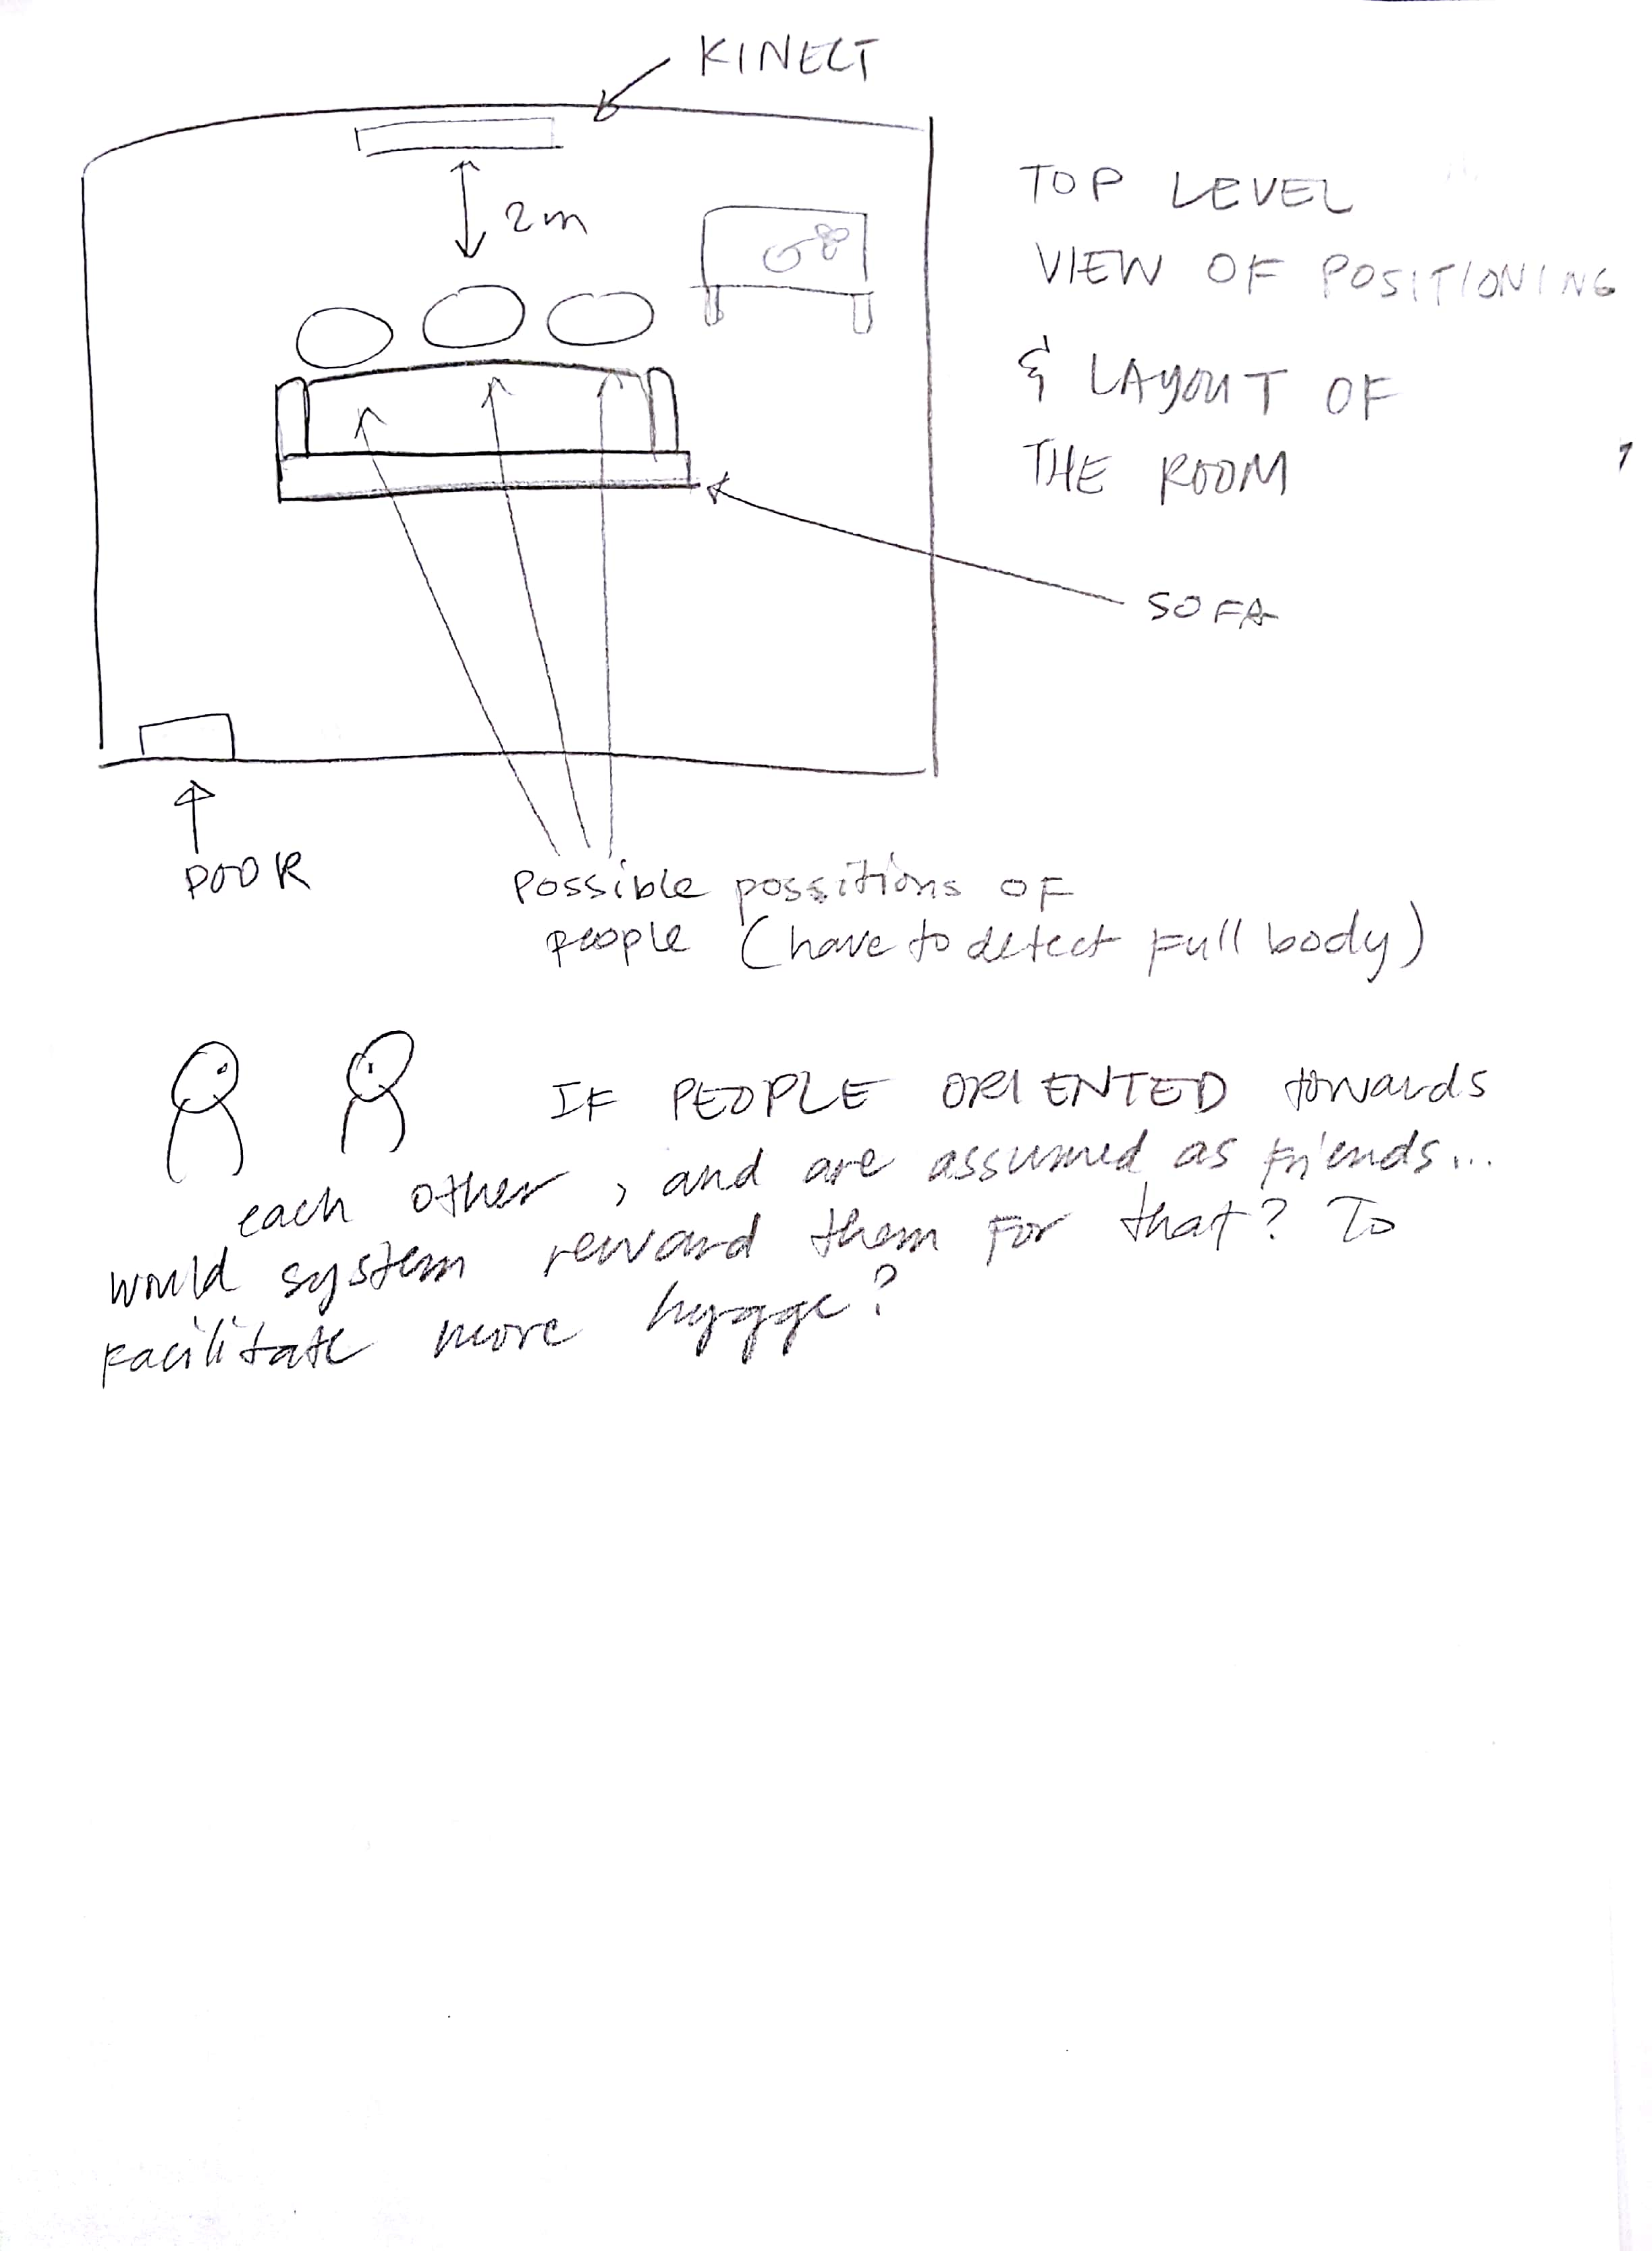 KINECT
2m
TOP LEVEL
VIEW OF POSITIONING
& LAYOUT OF
THE ROOM
SOFA
DOOR
possible possitions of
people (have to detect full body)
IF PEOPLE ORIENTED towards
each other, and are assumed as friends...
would system reward them for that? To
facilitate more hygge?